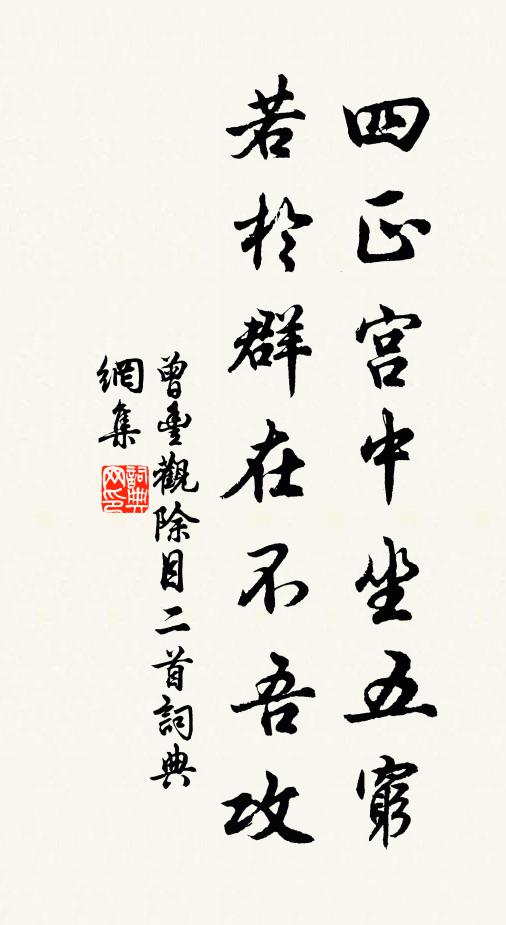 四正宮中坐五窮
若於群在不吾攻
曾豊觀除目二首詞典
網集
詞典
网印